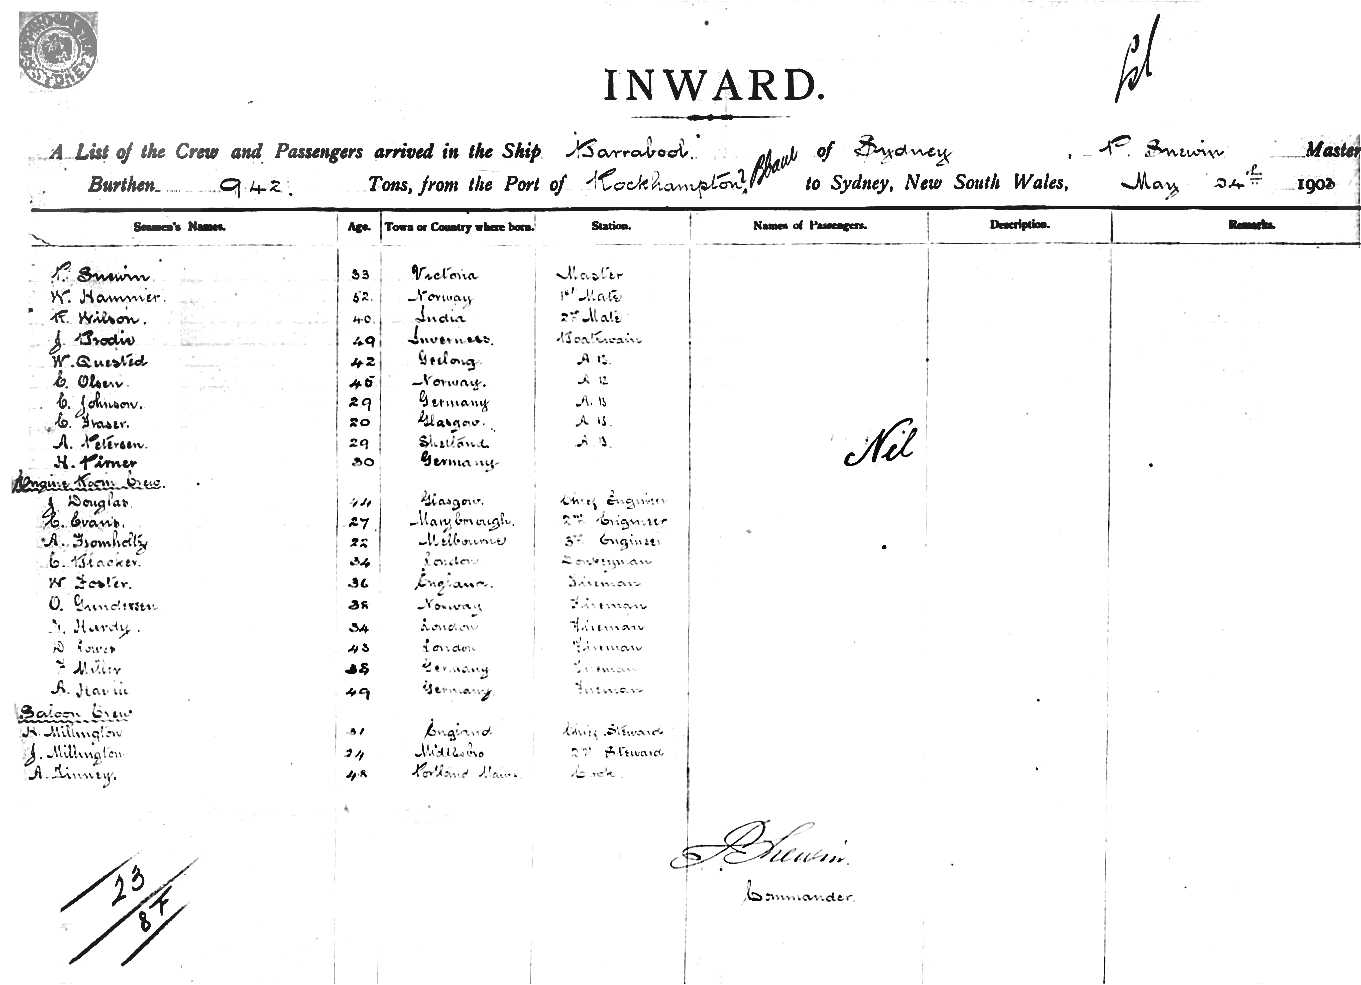 SYDNEY
INWARD.
A List of the Crew and Passengers arrived in the Ship "Barrabool" of Sydney, P. Snewin Master
Burthen 942. Tons, from the Port of Rockhampton to Sydney, New South Wales, May 24th 190
Seamen's Names. Age. Town or Country where born. Station. Names of Passengers. Description. Remarks.
P. Snewin. 33 Victoria Master
W. Hammer. 52. Norway 1st Mate
R. Wilson. 40. India 2nd Mate
J. Brodie 49 Inverness. Boatswain
W. Quested 42 Geelong. A B.
C. Olsen. 45 Norway. A B
C. Johnson. 29 Germany A. B
C. Fraser. 20 Glasgow. A B.
A. Petersen. 29 Shetland A B.
H. Pirner 30 Germany
Nil
Engine Room Crew.
J Douglas. 44 Glasgow. Chief Engineer
C. Evans. 27 Maryborough. 2nd Engineer
A. Fromholtz 22 Melbourne 3rd Engineer
C. Blacker. 34 London Donkeyman
W Foster. 36 England. Fireman
O. Gundersen 38 Norway Fireman
Hardy. 34 London Fireman
D 43 London Fireman
F Miller 35 Germany Fireman
A. 49 Germany Fireman
Saloon Crew
Millington 31 England Chief Steward
J. Millington 24 Middlesbro 2nd Steward
A. Finney. 48 Portland Cook.
P. Snewin.
Commander.
23
8 F